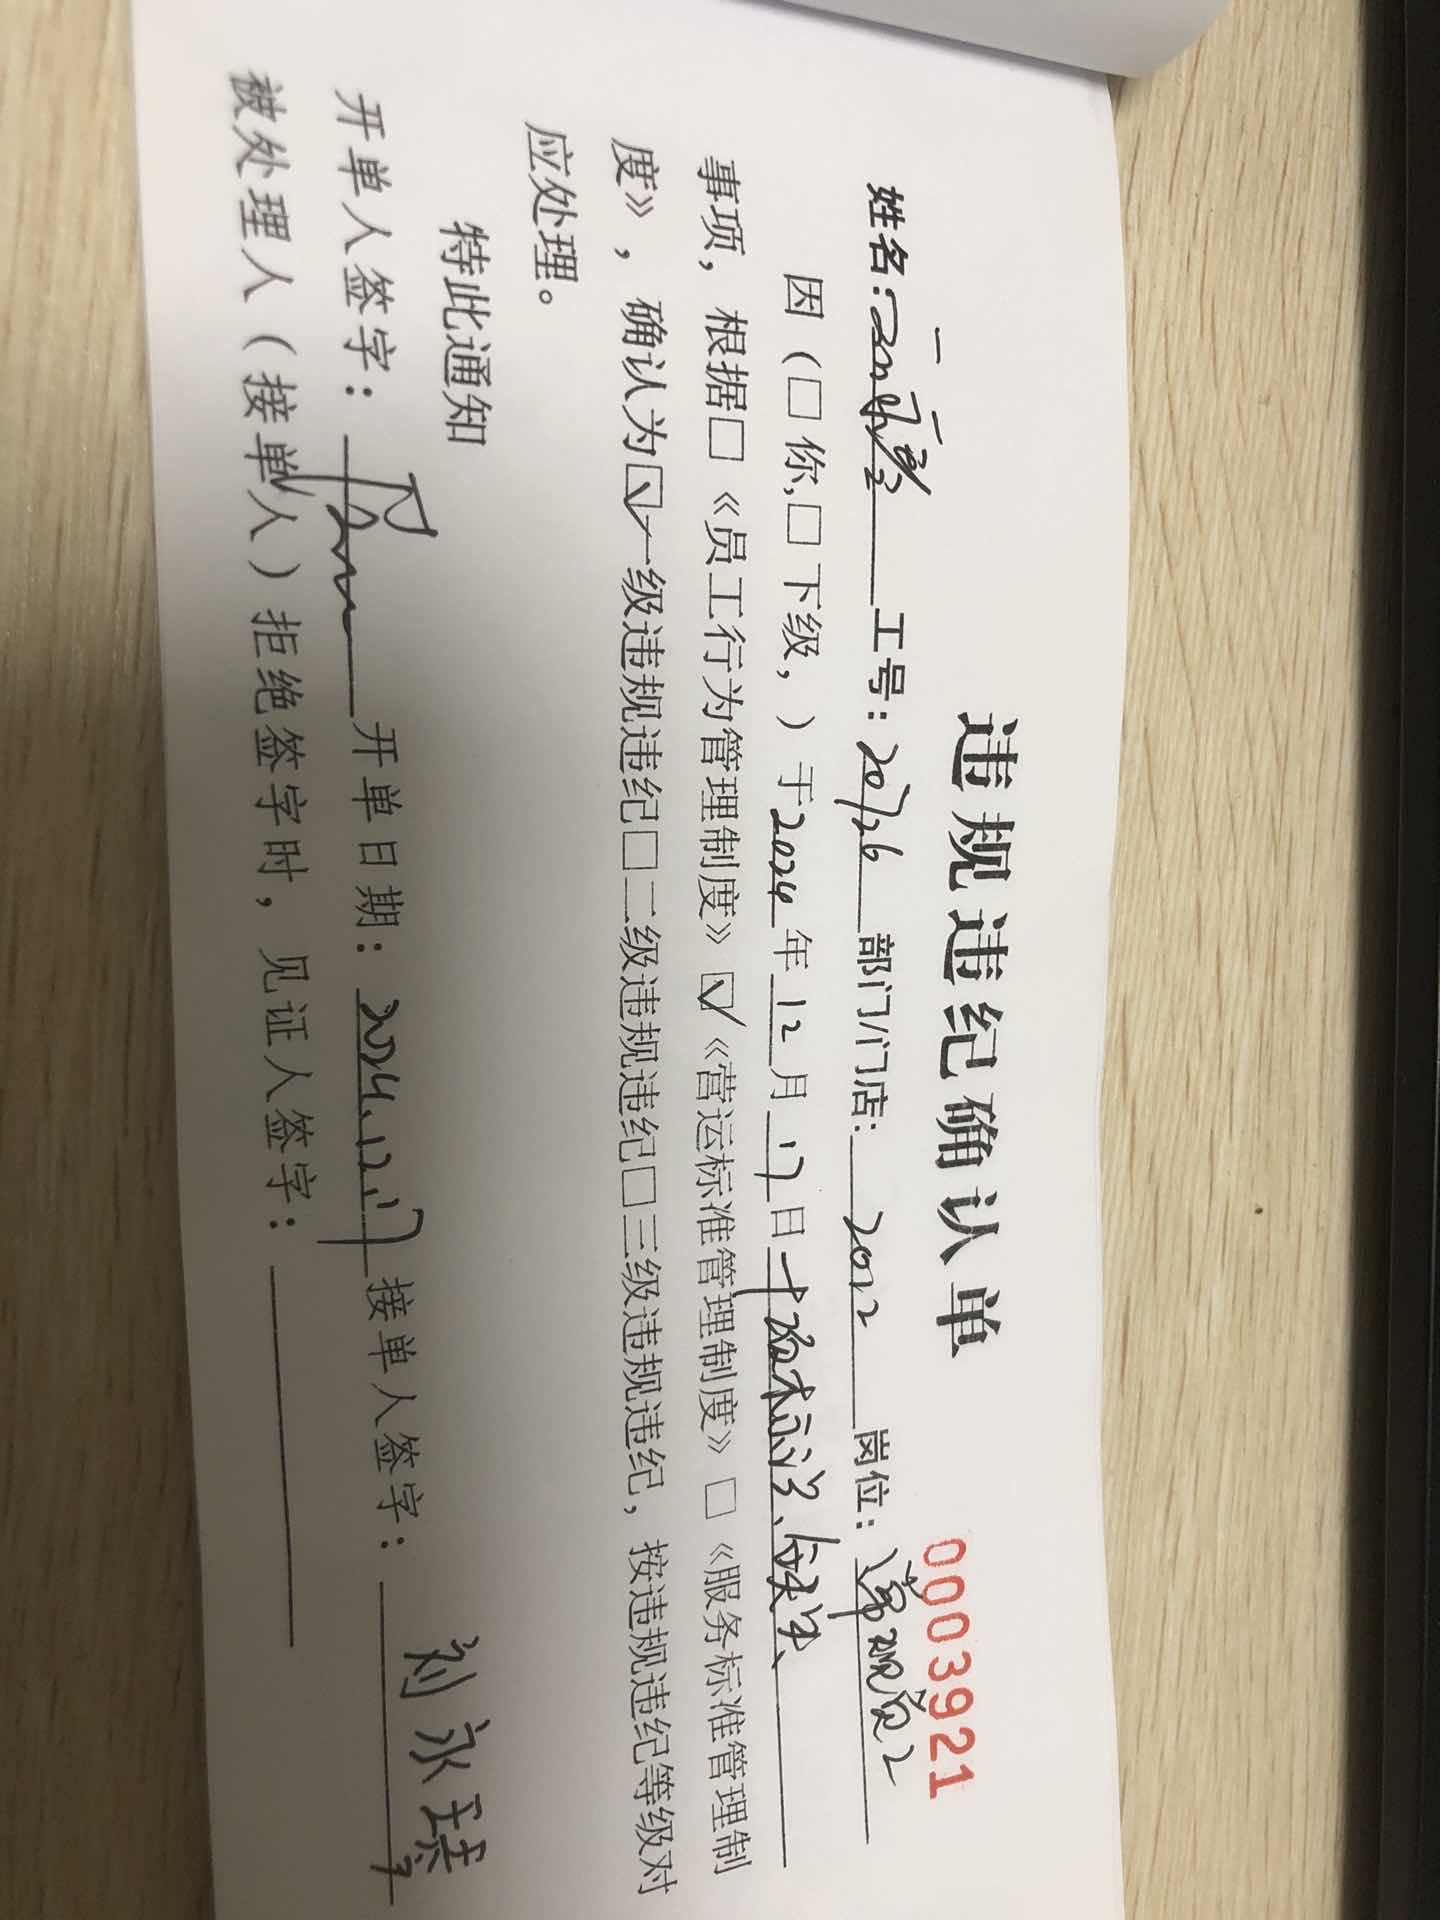 违规违纪确认单
0003921
姓名: 工号: 20726 部门/门店: 2022 岗位:
因（□你,□下级，）于2024年12月17日
事项，根据□《员工行为管理制度》☑《营运标准管理制度》□《服务标准管理制
度》，确认为☑一级违规违纪□二级违规违纪□三级违规违纪，按违规违纪等级对
应处理。
特此通知
开单人签字： 开单日期：2024.12.17 接单人签字：刘永
被处理人（接单人）拒绝签字时，见证人签字：